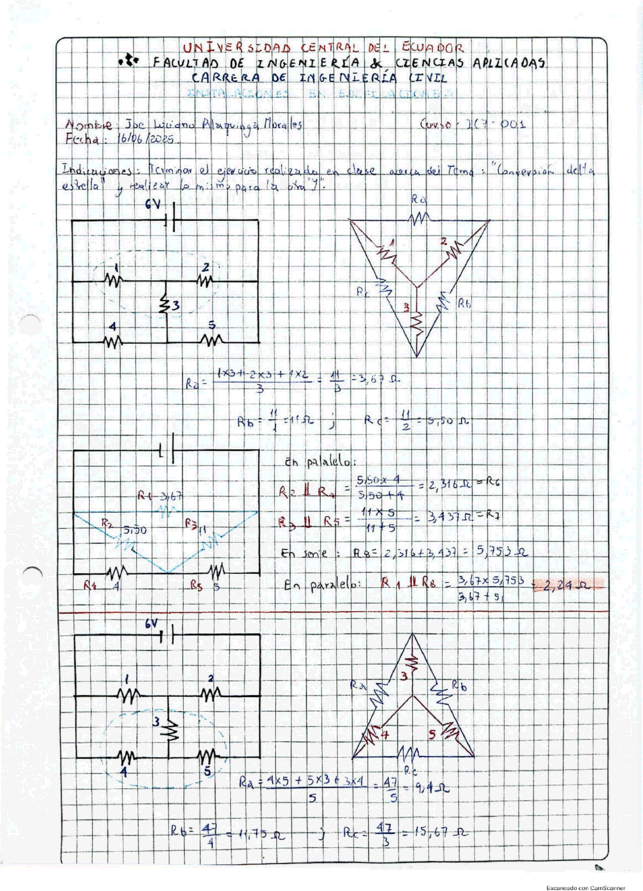 UNIVERSIDAD CENTRAL DEL ECUADOR
FACULTAD DE INGENIERÍA & CIENCIAS APLICADAS
CARRERA DE INGENIERÍA CIVIL
INSTALACIONES EN EDIFICACIONES
Nombre: Joe Luciano Pilaquinga Morales Curso: IC7-001
Fecha: 16/06/2025.
Indicaciones: Terminar el ejercicio realizado en clase acerca del Tema: "Conversión delta
estrella" y realizar lo mismo para la otra "Y".
6V
Ra
1 2
3
4 5
1 2
Rc 3 Rb
Ra = 1x3+2x3+1x2 / 3 = 11/3 = 3,67 Ω
Rb = 11/1 = 11 Ω ; Rc = 11/2 = 5,50 Ω
R1 3,67
R2 5,50 R3 11
R4 4 R5 5
En paralelo:
R2 || R4 = 5,50x4 / 5,50+4 = 2,316 Ω = R6
R3 || R5 = 11x5 / 11+5 = 3,437 Ω = R7
En serie: R8 = 2,316+3,437 = 5,753 Ω
En paralelo: R1 || R8 = 3,67x5,753 / 3,67+5, = 2,24 Ω
6V
1 2
3
4 5
Ra 3 Rb
4 5
Rc
Ra = 4x5 + 5x3 + 3x4 / 5 = 47/5 = 9,4 Ω
Rb = 47/4 = 11,75 Ω ; Rc = 47/3 = 15,67 Ω
Escaneado con CamScanner